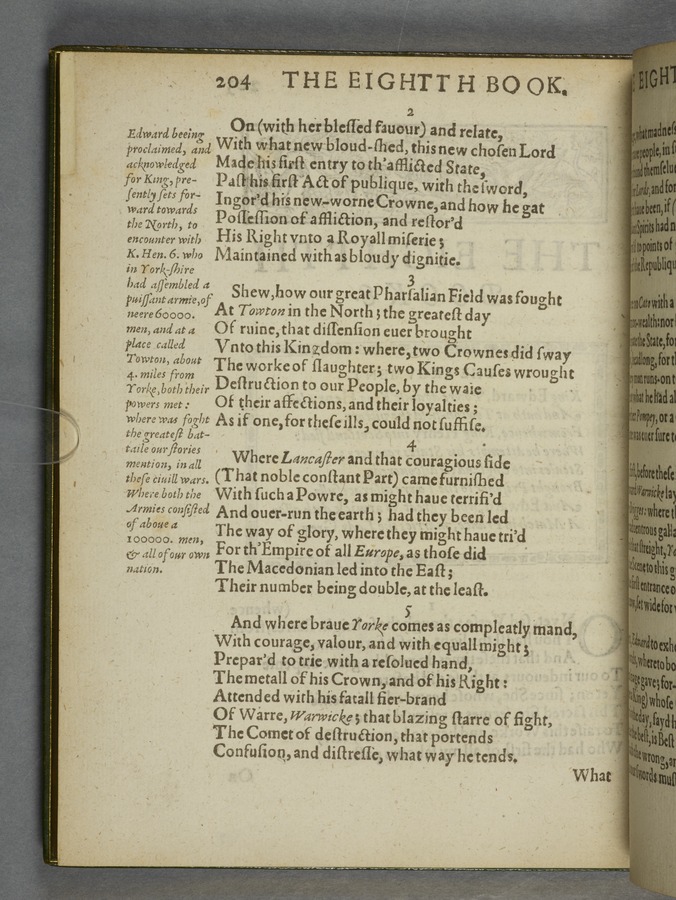 204 THE EIGHTTH BOOK.
2
On (with her blessed fauour) and relate,
With what new bloud-shed, this new chosen Lord
Made his first entry to th'afflicted State,
Past his first Act of publique, with the sword,
Ingor'd his new-worne Crowne, and how he gat
Possession of affliction, and restor'd
His Right vnto a Royall miserie;
Maintained with as bloudy dignitie.
3
Shew, how our great Pharsalian Field was fought
At Towton in the North; the greatest day
Of ruine, that dissension euer brought
Vnto this Kingdom: where, two Crownes did sway
The worke of slaughter; two Kings Causes wrought
Destruction to our People, by the waie
Of their affections, and their loyalties;
As if one, for these ills, could not suffise.
4
Where Lancaster and that couragious side
(That noble constant Part) came furnished
With such a Powre, as might haue terrifi'd
And ouer-run the earth; had they been led
The way of glory, where they might haue tri'd
For th'Empire of all Europe, as those did
The Macedonian led into the East;
Their number being double, at the least.
5
And where braue Yorke comes as compleatly mand,
With courage, valour, and with equall might;
Prepar'd to trie with a resolued hand,
The metall of his Crown, and of his Right:
Attended with his fatall fier-brand
Of Warre, Warwicke; that blazing starre of fight,
The Comet of destruction, that portends
Confusion, and distresse, what way he tends.
What
Edward beeing
proclaimed, and
acknowledged
for King, pre-
sently sets for-
ward towards
the North, to
encounter with
K. Hen. 6. who
in York-shire
had assembled a
puissant armie, of
neere 60000.
men, and at a
place called
Towton, about
4. miles from
Yorke, both their
powers met:
where was foght
the greatest bat-
taile our stories
mention, in all
these ciuill wars.
Where both the
Armies consisted
of aboue a
100000. men,
& all of our own
nation.